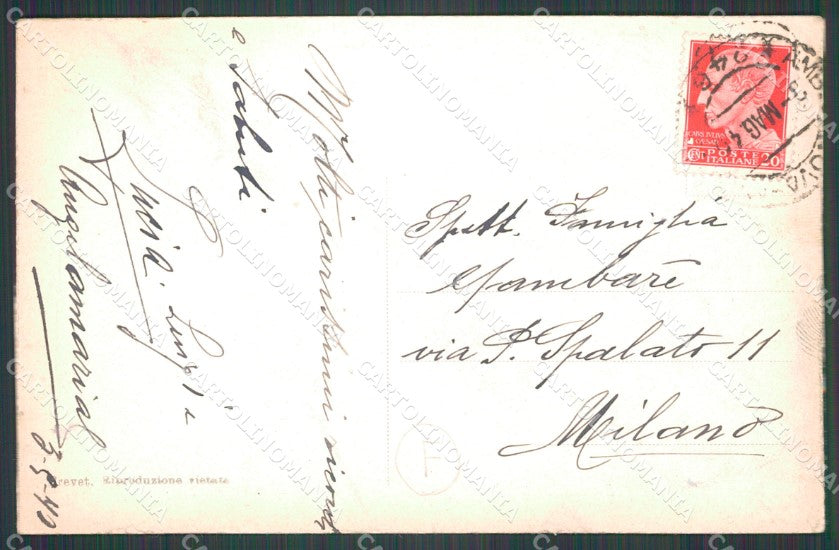 Molti carissimi ricordi
e saluti
Lucia. Luigi
Angelamaria
3-5-40
Brevet. Riproduzione vietata
MAG
CAIVS IVLIVS
CAESAR
POSTE
ITALIANE
20
Spett. Famiglia
Gambarè
via P. Spalato 11
Milano
CARTOLINOMANIA